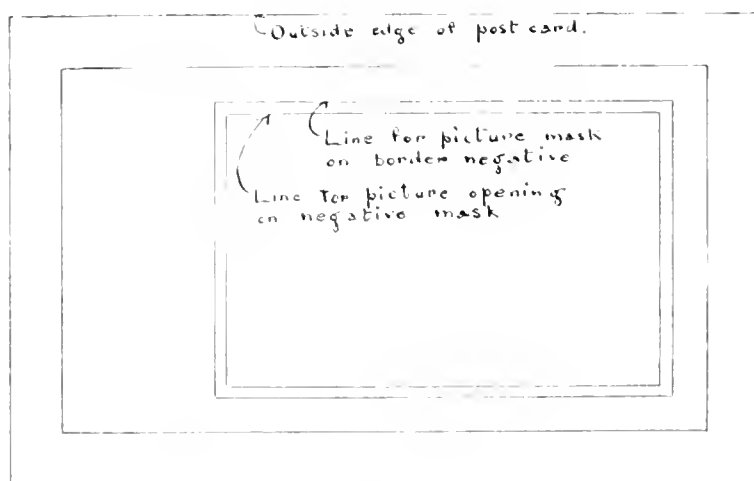 Outside edge of post card.
Line for picture mask
on border negative
Line for picture opening
on negative mask